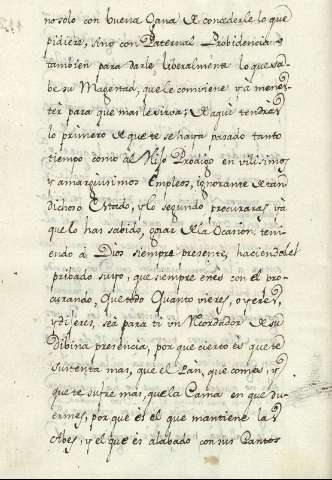 no solo con buena Gana de concederle lo que
pidiere; sino con Paternal Probidencia y
tambien para darle liberalmente lo que sa-
be su Magestad, que le conviene y à menes-
ter para que mas le sirva; de aqui tendràs
lo primero de que te se haya pasado tanto
tiempo como al Hijo Prodigo en vilisimos
y amarguisimos Empleos, ignorante de tan
dichoso Estado, y lo segundo procuraras yà
que lo has sabido, gozar de la Ocasion, teni-
endo à Dios siempre presente, haciendote
pribado suyo, que siempre estès con el pro-
curando, que todo quanto vieres, oyeres,
y dijeres, sea para ti un Recordador de su
Dibina presencia, porque cierto es que te
sustenta mas, que el Pan, que comes, y
que te sufre mas, que la Cama en que du-
ermes, porque es el que mantiene las
Abes, y el que es alabado con sus Cantos